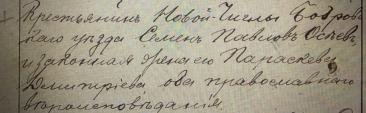 Крестьянинъ Новой-Чиглы Бобров-
скаго уѣзда Семенъ Павловъ
и законная жена его Параскева
Димитріева, оба православнаго
вѣроисповѣданія